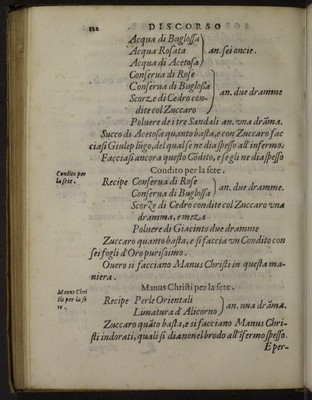 DISCORSO
Acqua di Buglossa
Acqua Rosata } an. sei oncie.
Acqua di Acetosa
Conserua di Rose
Conserua di Buglossa
Scorze di Cedro con- } an. due dramme
dite col Zuccaro
Poluere de i tre Sandali an. vna drãma.
Succo di Acetosa quanto basta, e con Zuccaro fac
ciasi Giulep lũgo, del qual se ne dia spesso all'infermo.
Facciasi ancora questo Cõdito, e se gli ne dia spesso
Condito per la sete.
Condito per
la sete.
Recipe Conserua di Rose
Conserua di Buglossa } an. due dramme.
Scorze di Cedro condite col Zuccaro vna
dramma, e meza
Poluere di Giacinto due dramme
Zuccaro quanto basta, e si faccia vn Condito con
sei fogli d'Oro purissimo.
Ouero si facciano Manus Christi in questa ma-
niera.
Manus Christi per la sete.
Manus Chri
sti per la se
te.
Recipe Perle Orientali
Limatura d'Alicorno } an. una drãma.
Zuccaro quãto basta, e si facciano Manus Chri-
sti indorati, quali si dianonel brodo all'ĩfermo spesso.
E per-